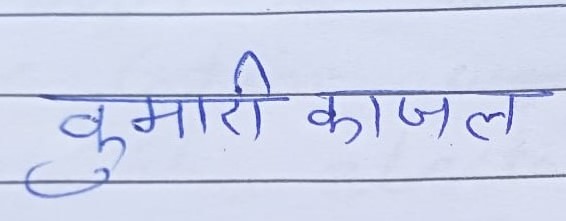 कुमारी काजल